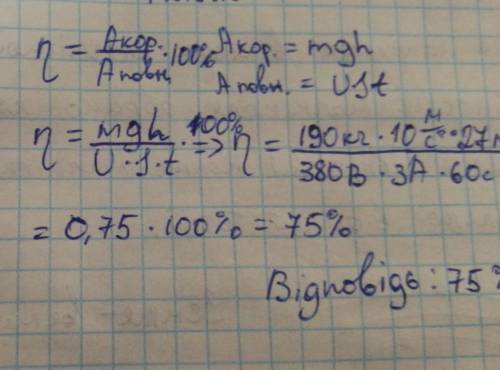 η = Aкор. / Aповн. · 100% Aкор. = mgh
Aповн. = UIt
η = mgh / U · I · t · 100% => η = 190кг · 10 м/с² · 27м / 380В · 3А · 60с
= 0,75 · 100% = 75%
Відповідь : 75%